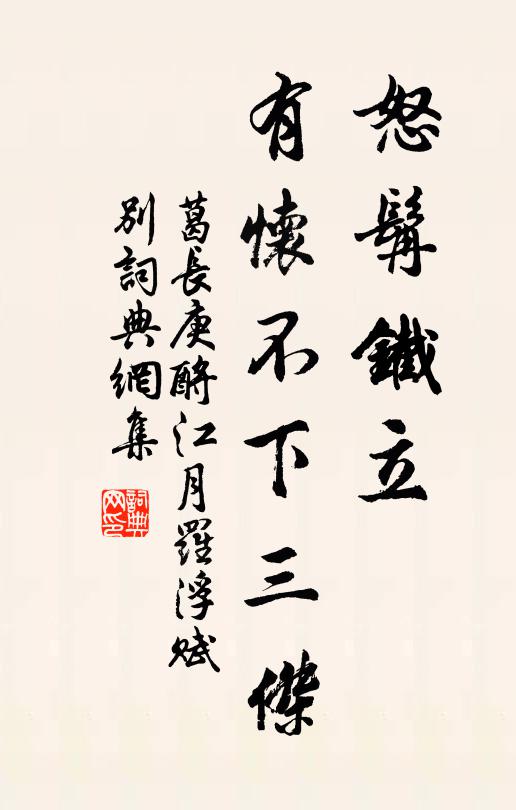 怒髯鐵立
有懷不下三傑
葛長庚酹江月羅浮賦
別詞典網集
詞典
网印